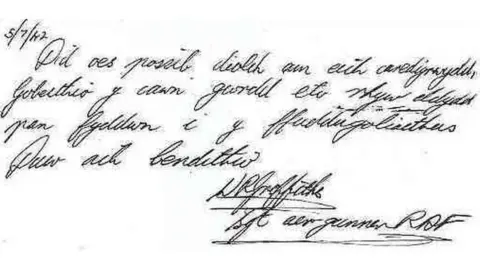 5/7/42
Did oes poseib diolch am eich caredigrwydd,
Gobeithio y cawn gwrdd eto rhyw ddydd
pan fyddwn i y ffuddugoliaethus
Duw aich bendithio
D R Griffiths
Sgt air gunner RAF